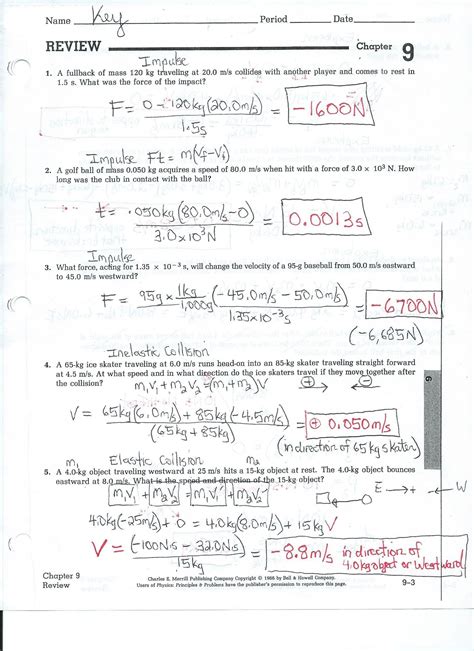 Name Key Period Date
REVIEW Chapter 9
Impulse
1. A fullback of mass 120 kg traveling at 20.0 m/s collides with another player and comes to rest in
1.5 s. What was the force of the impact?
F = 0 - 120kg(20.0m/s) / 1.5s = -1600N
Impulse Ft = m(Vf-Vi)
2. A golf ball of mass 0.050 kg acquires a speed of 80.0 m/s when hit with a force of 3.0 × 10³ N. How
long was the club in contact with the ball?
t = .050kg(80.0m/s-0) / 3.0×10³N = 0.0013s
Impulse
3. What force, acting for 1.35 × 10⁻³ s, will change the velocity of a 95-g baseball from 50.0 m/s eastward
to 45.0 m/s westward?
F = 95g × 1kg/1,000g (-45.0m/s - 50.0m/s) / 1.35×10⁻³s = -6700N
(-6,685N)
Inelastic Collision
4. A 65-kg ice skater traveling at 6.0 m/s runs head-on into an 85-kg skater traveling straight forward
at 4.5 m/s. At what speed and in what direction do the ice skaters travel if they move together after
the collision? m₁V₁ + m₂V₂ = (m₁+m₂)V + -
V = 65kg(6.0m/s) + 85kg(-4.5m/s) / (65kg + 85kg) = + 0.050m/s
(in direction of 65kg skater)
6
m₁ Elastic Collision m₂
5. A 4.0-kg object traveling westward at 25 m/s hits a 15-kg object at rest. The 4.0-kg object bounces
eastward at 8.0 m/s. What is the speed and direction of the 15-kg object?
m₁V₁ + m₂V₂ = m₁V₁' + m₂V₂' E → + ← W
4.0kg(-25m/s) + 0 = 4.0kg(8.0m/s) + 15kg V
V = (-100N·s - 32.0N·s) / 15kg = -8.8m/s in direction of
4.0kg object or Westward
Chapter 9
Review
Charles E. Merrill Publishing Company Copyright © 1986 by Bell & Howell Company.
Users of Physics: Principles & Problems have the publisher's permission to reproduce this page.
9-3